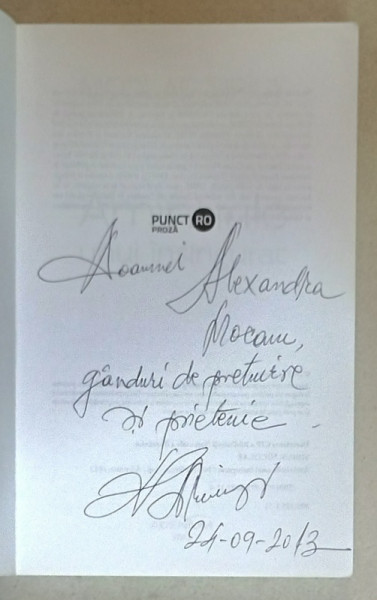 PUNCT RO
PROZĂ
Ioannei Alexandra
Mocanu,
gânduri de prețuire
și prietenie
24-09-2013